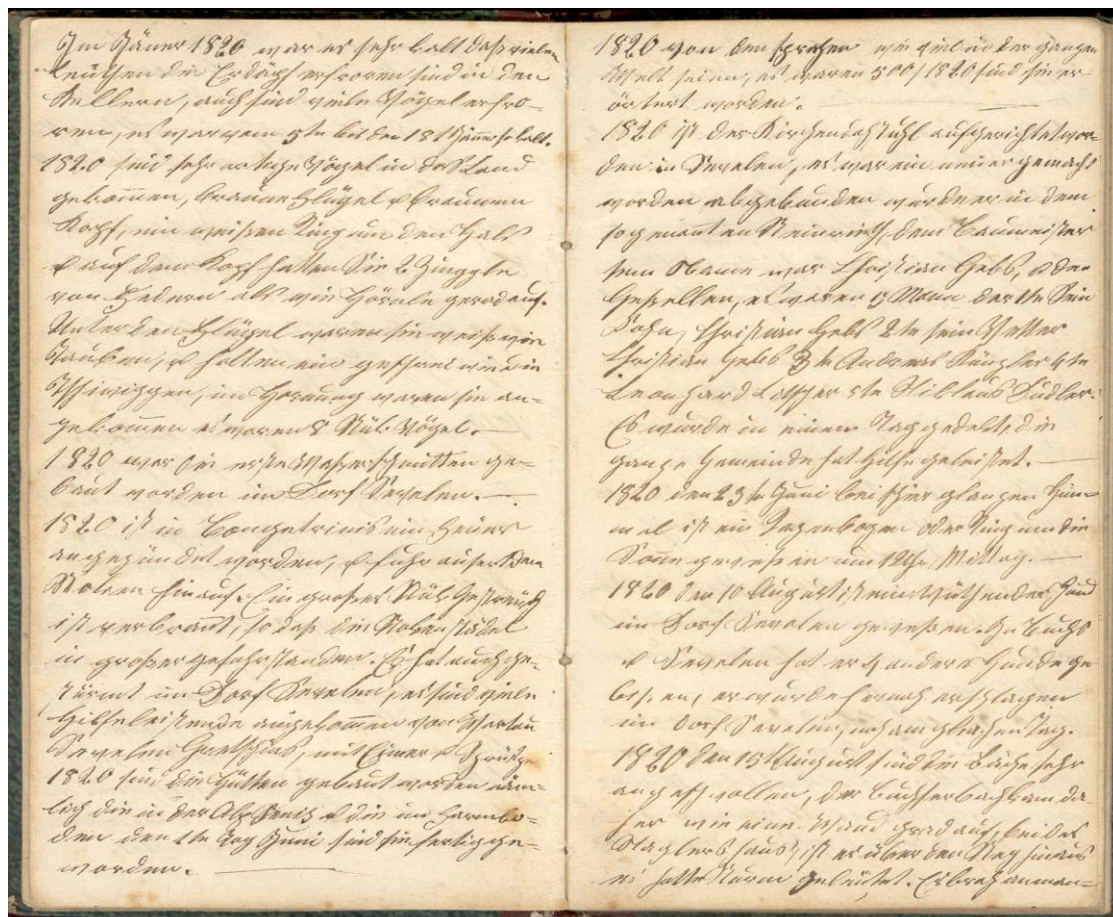 Im Jäner 1820 war es sehr kalt daß vielen
Leuthen die Erdäpf erfroren sind in den
Kellern, auch sind viele Vögel erfro-
ren, es war vom 5te bis den 18t Jänner so kalt.
1820 sind sehr artige Vögel in das Land
gekommen, braune Flügel & braunen
Kopf, ein weißen Ring um den Hals
& auf dem Kopf hatten Sie 2 Zinggle
von Federn als wie Hörnle gerad auf.
Unter den Flügel waren sie weiß wie
Tauben, & hatten ein geschrei wie die
im Hornung waren sie an-
gekommen es waren 8 Stük Vögel.
1820 war die erste Waßerschnitten ge-
baut worden im Dorf Sevelen.
1820 ist in ein Feuer
angezündet worden, & fuhr auf den
Stoken hinauf. Ein großes Stük Gesträuch
ist verbrant, so daß die
in großer gefahr standen. Es hat auch ge-
stürmt im Dorf Sevelen, es sind viele
Hilfeleistende angekommen von Wartau
Sevelen Gretschins, mit Eimer & Sprütze
1820 sind die Hütten gebaut worden näm-
lich die in der Alp & die im Farnbo-
den den 1te Tag Juni sind sie fertig ge-
worden.
1820 von den sprachen wie viel in der ganzen
Welt seien, es waren 500 / 1820 sind sie er-
örtert worden.
1820 ist der Kirchendachstuhl aufgerichtet wor-
den in Sevelen, es war ein neuer gemacht
worden abgebunden wurde er in dem
sogenanten Steinrisch, dem Baumeister
sein Name war Christian Gebs, & den
Gesellen, es waren 5 Mann der 1te Sein
Sohn, Christian Gebs 2te sein Vetter
Christian Gebs 3te Andreas 4te
Leonhard Litscher 5te Niklaus Dudler.
Es wurde in einem Tag gedekt, die
ganze Gemeinde hat Hilfe geleistet.
1820 den 23te Juni bei schier glanzen Him-
mel ist ein Regenbogen oder Ring um die
Sonne gewesen um 12 Uhr Mittag.
1820 den 10 August ist ein Wüthender Hund
im Dorf Sevelen gewesen. In Buchs
& Sevelen hat er 4 andere Hunde ge
bissen, er wurde hernach erschlagen
im Dorf Sevelen, noch am gleichen Tag.
1820 den 15 August sind die Bäche sehr
angeschwollen, der Buchserbach kam da
her wie eine Wand grad auf, bei des
haus, ist er über den Steg hinaus
es hatte Sturm geleütet. Er brach an man-